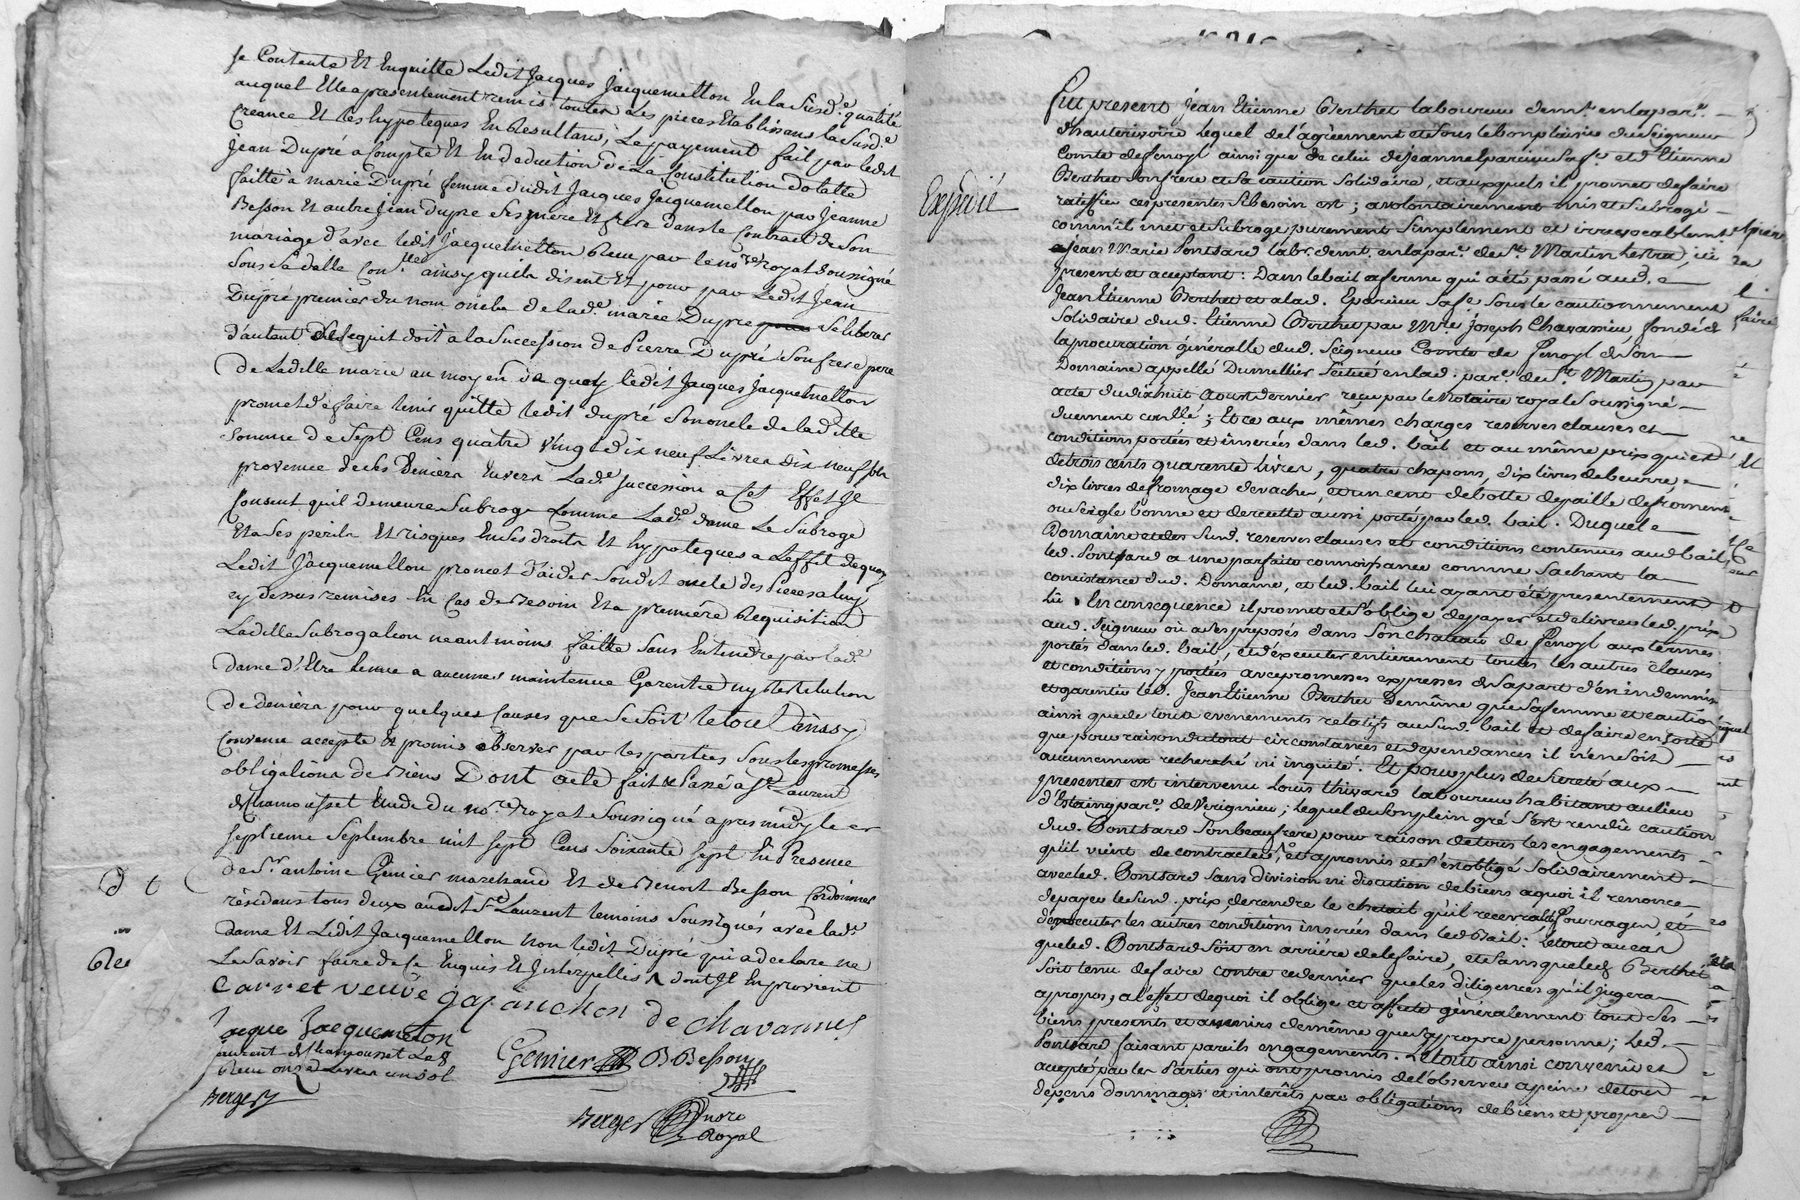 se Contente Et Enquitte Ledit Jacques Jacquemetton En la Susd.e qualité
auquel Elle apresentement remis toutes Les pieces Etablissans la Susd.e
Creance Et les hypoteques En Resultans, Le payement fait par ledit
Jean Dupré a Compte Et En deduction de La Constitution dotalle
faitte à marie Dupré femme dudit Jacques Jacquemetton par Jeanne
Besson Et autre Jean dupré Ses mere Et frere dans le Contract de Son
mariage d'avec ledit Jacquemetton Receu par le no.re royal Soussigné
Sous Sa datte ainsy quils disent Et pour par Ledit Jean
Dupré premier du nom oncle de lad.e marie Dupré Se liberer
d'autant de ce quil doit a la Succession de Pierre Dupré Son frere pere
de Laditte marie au moyen de quoy ledit Jacques Jacquemetton
promet de faire tenir quitte ledit dupré Son oncle de laditte
Somme de Sept Cens quatre vingt dix neuf Livres dix neuf Sols
provenue de Ses deniers Envers Lad.e Succession a Cet Effet Il
Consent quil demeure Subrogé Comme Lad.e dame Le Subroge
Et a Ses perils Et risques En Ses droits Et hypoteques a L'effet de quoy
Ledit Jacquemetton promet d'aider Son dit oncle des Pieces a luy
cy dessus remises En Cas de Besoin Et a premiére Requisition
Laditte Subrogation neantmoins faitte Sans Entendre par lad.e
dame d'Etre tenue a aucunes maintenue Garentie ny Restitution
de deniers pour quelques Causes que Se Soit le tout ainsy
Convenu accepté Et promis observer par les parties Sous les promesses
obligations de Biens Dont acte fait & Passé a S.t Laurent
de Chamousset Etude du no.re royal Soussigné apres midy le
Septieme Septembre mil Sept Cens Soixante Sept En Presence
de S.r antoine Genier marchand Et de Benoit Besson Cordonnier
résidans tous deux audit S.t Laurent temoins Soussignés avec lad.e
dame Et Ledit Jacquemetton Non ledit Dupré qui a declaré ne
Le Savoir faire de Ce Enquis Et Interpellés
Carret veuve gapanchon de chavannes
Jacque Jacquemeton
Genier B Besson
Laurent de Chamousset Le 8
Receu onze Livres un Sol
Berger
Berger no.re
Royal
Expedié
Fut present Jean Etienne Berthet laboureur dem.t en la par.e
d'hauterivoire lequel de l'agrèement et sous le bon plaisir du Seigneur
Comte de fenoyl ainsi que de celui de Jeanne Eparcieu sa fe. et d'Etienne
Berthet Son frere et Sa caution Solidaire, et auxquels il promet de faire
ratiffier ces presentes Si besoin est; a volontairement mis et Subrogé
comm'il met et Subroge purement Simplement et irrevocablement
Jean Marie Pontsard lab.r dem.t en la par.e de S.t Martin lestra, ici
present et acceptant: Dans le bail a ferme qui a été passé aud.
Jean Etienne Berthet et a lad. Eparcieu Sa fe. Sous le cautionnement
Solidaire dud. Etienne Berthet par M.re Joseph Chavassieu, fondé de
la procuration généralle dud. Seigneur Comte de fenoyl de Son
Domaine appellé Dumellier Scitué en lad. par.e de S.t Martin par
acte du dixhuit aoust dernier reçu par le Notaire royal Soussigné
duement conllé; Et ce aux mêmes charges reserves clauses et
conditions portées et inserées dans led. bail et au même prix qui est
de trois cents quarente livres, quatre chapons, dix livres de beurre,
dix livres de fromage de vache, et un cent de botte de paille de froment
ou Seigle bonne et de recette aussi porté par led. bail. Duquel
Domaine et des Susd. reserves clauses et conditions contenues aud. bail
led. Pontsard a une parfaite connoissance comme Sachant la
concistance dud. Domaine, et led. bail lui ayant été presentement
lû. En consequence il promet et S'oblige de payer et delivrer led. prix
aud. Seigneur où a Ses preposés dans Son chateau de fenoyl aux termes
portés dans led. bail, et d'éxécuter entierement toutes les autres clauses
et conditions y portées avec promesses expresses de Sa part d'en indemniser
et garentir led. Jean Etienne Berthet De même que Sa femme et caution
ainsi que de tous evenements relatifs au Susd. bail et de faire en Sorte
que pour raison du tout circonstances et dependances il n'en Soit
aucunement recherché ni inquité. Et pour plus de Sureté aux
presentes est intervenu Louis thivard laboureur habitant au lieu
d'Estaing par.e de Virigneu; lequel de Son plein gré S'est rendû caution
dud. Pontsard Son beaufrere pour raison de tous les engagements
qu'il vient de contracter, et a promis et S'est obligé Solidairement
avec led. Pontsard Sans division ni discution de biens a quoi il renonce
de payer le Susd. prix, de rendre le chetail qu'il recevra, fourrages, et
d'éxecuter les autres conditions inserées dans led. Bail: le tout au cas
que led. Pontsard Soit en arriére de le faire, et Sans que led. Berthet
Soit tenu de faire contre ce dernier que les diligences qu'il jugera
a propos, a l'effet de quoi il oblige et affecte généralement tous Ses
biens presents et avenirs de même que Sa propre personne; led.
Pontsard faisant pareils engagements. Le tout ainsi convenû et
accepté par les Parties qui ont promis de l'observer a peine de tous
depens dommages et interêts par obligations de biens et propres